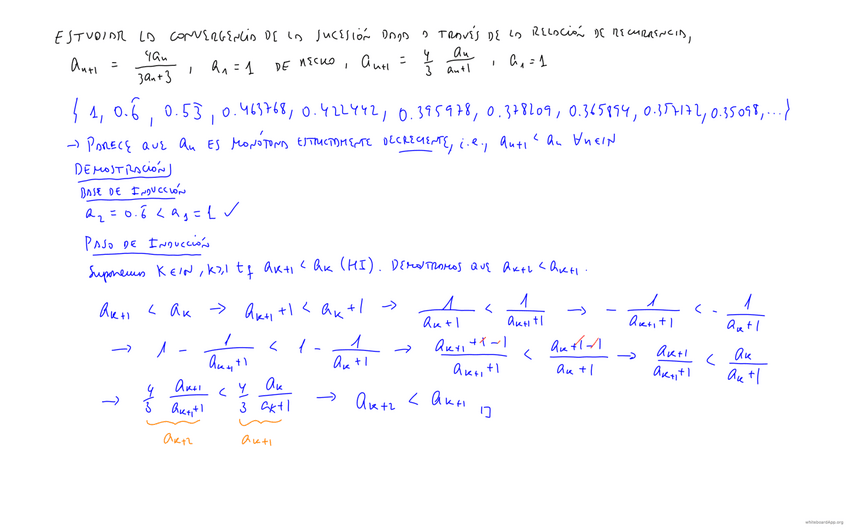 ESTUDIAR LA CONVERGENCIA DE LA SUCESIÓN DADA A TRAVÉS DE LA RELACIÓN DE RECURRENCIA,
a_{n+1} = \frac{4a_n}{3a_n+3}, a_1 = 1 DE HECHO, a_{n+1} = \frac{4}{3} \frac{a_n}{a_n+1}, a_1 = 1
{ 1, 0.\bar{6}, 0.5\bar{3}, 0.463768, 0.422442, 0.395978, 0.378209, 0.365894, 0.357172, 0.35098, ... }
→ PARECE QUE a_n ES MONÓTONA ESTRICTAMENTE DECRECIENTE, i.e., a_{n+1} < a_n ∀n∈ℕ
DEMOSTRACIÓN
BASE DE INDUCCIÓN
a_2 = 0.\bar{6} < a_1 = 1 ✓
PASO DE INDUCCIÓN
Suponemos K∈ℕ, K≥1 tq a_{K+1} < a_K (HI). DEMOSTRAMOS QUE a_{K+2} < a_{K+1}.
a_{K+1} < a_K → a_{K+1}+1 < a_K+1 → \frac{1}{a_K+1} < \frac{1}{a_{K+1}+1} → -\frac{1}{a_{K+1}+1} < -\frac{1}{a_K+1}
→ 1 - \frac{1}{a_{K+1}+1} < 1 - \frac{1}{a_K+1} → \frac{a_{K+1}+1-1}{a_{K+1}+1} < \frac{a_K+1-1}{a_K+1} → \frac{a_{K+1}}{a_{K+1}+1} < \frac{a_K}{a_K+1}
→ \frac{4}{3} \frac{a_{K+1}}{a_{K+1}+1} < \frac{4}{3} \frac{a_K}{a_K+1} → a_{K+2} < a_{K+1} □
a_{K+2} a_{K+1}
whiteboardapp.org